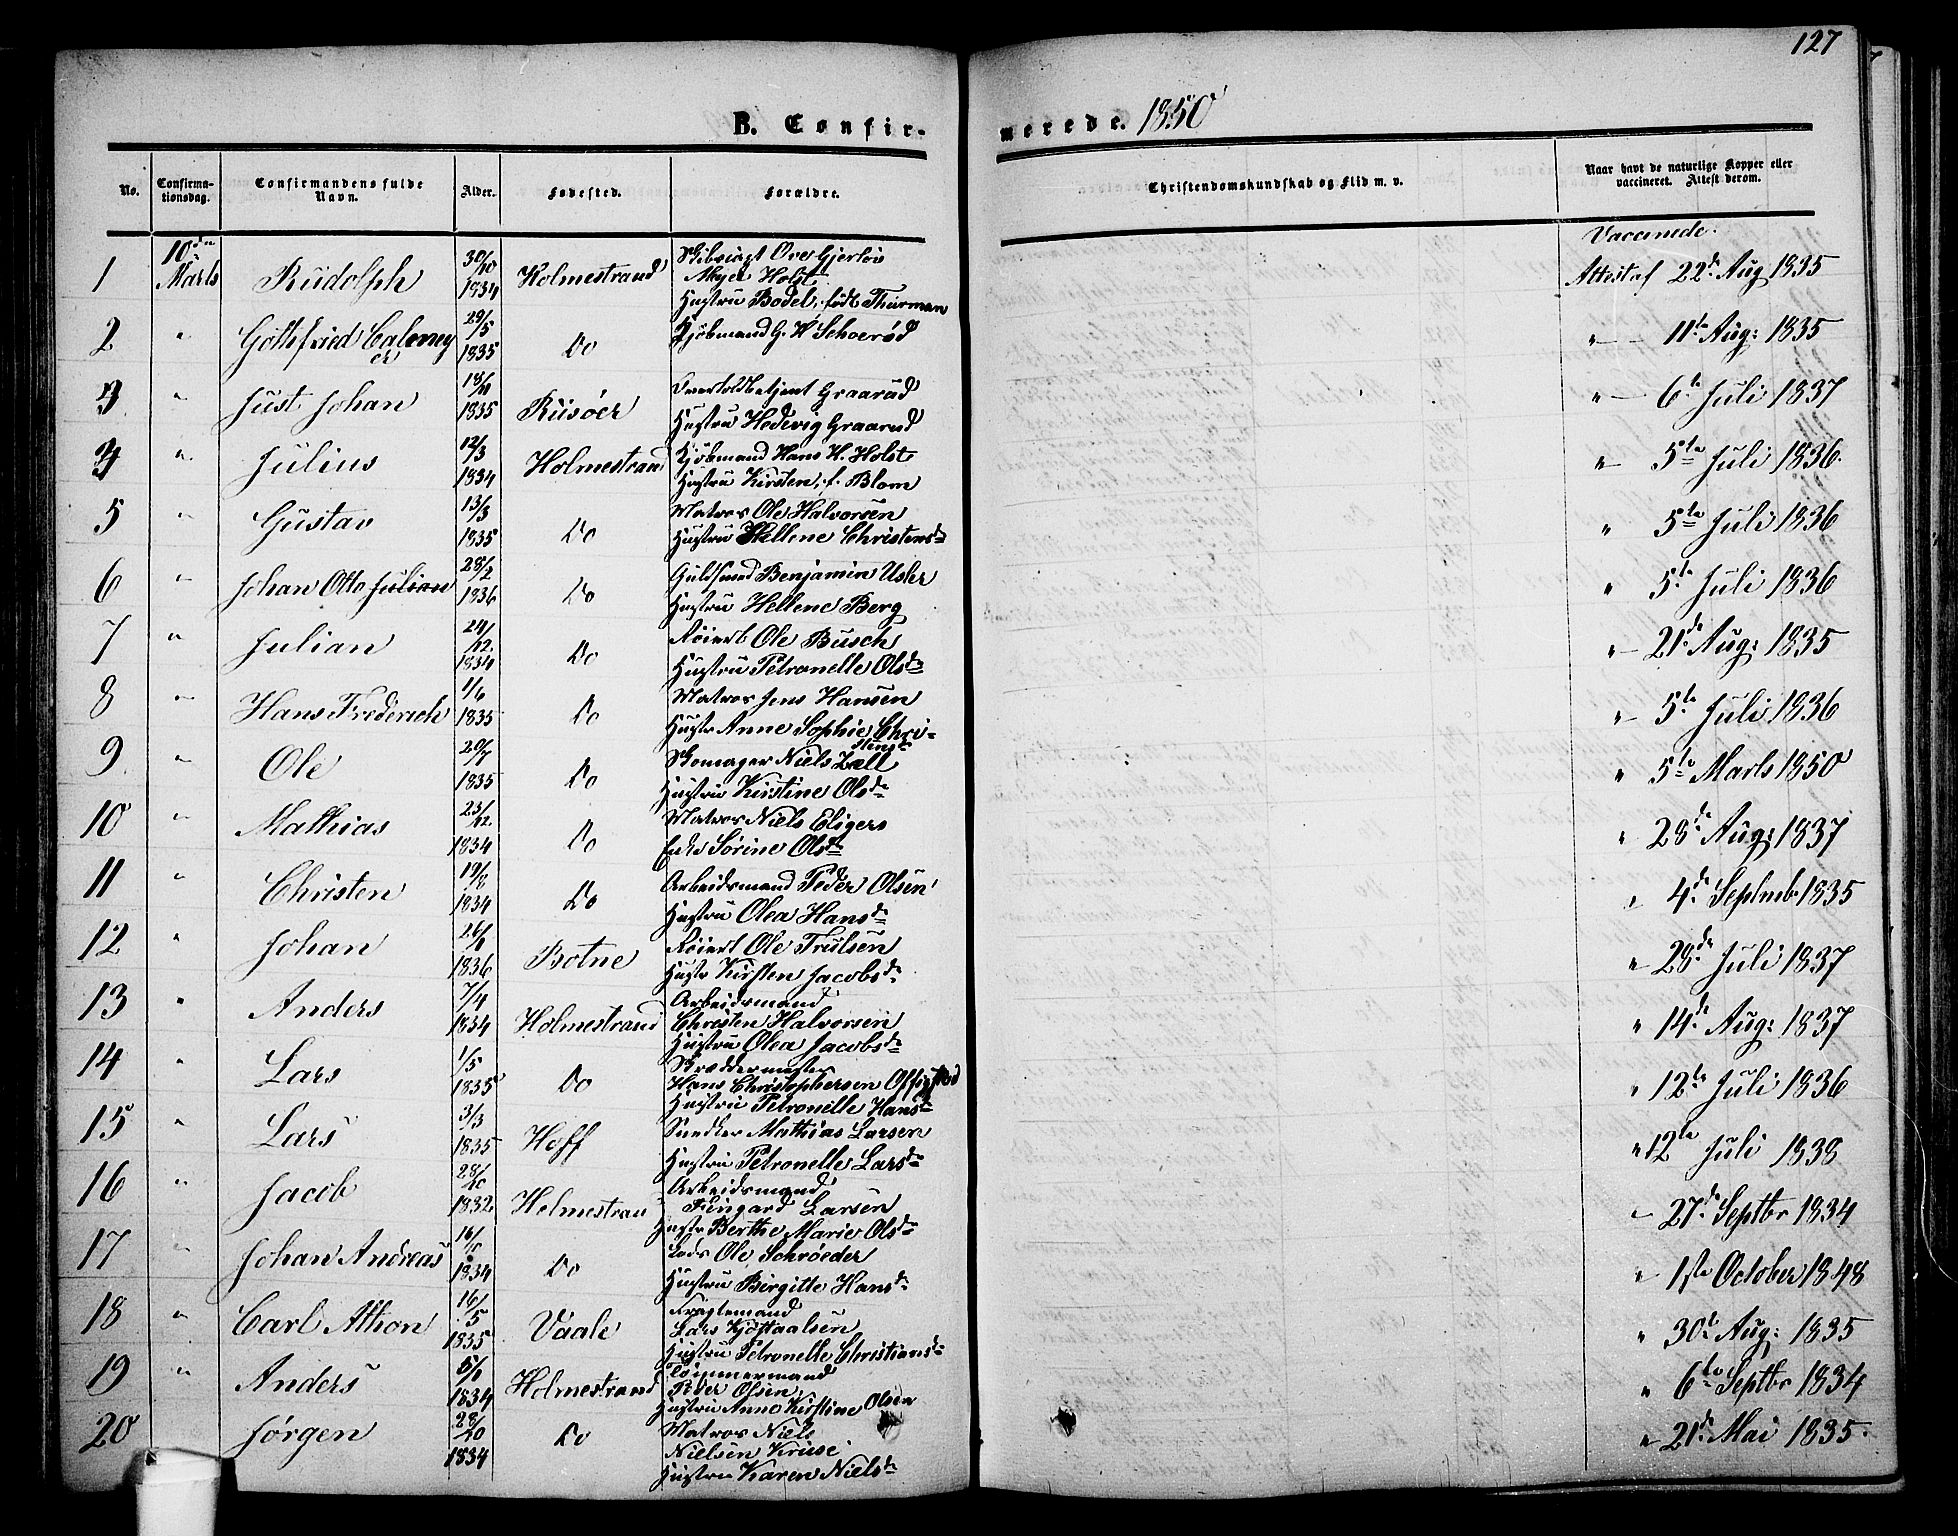 127
B. Confir-
merede. 1850
No.
Confirma-
tionsdag.
Confirmandens fulde
Navn.
Alder.
Fødested.
Forældre.
Christendomskundskab og Flid m. v.
Naar havt de naturlige Kopper eller
vaccineret. Attest derom.
Vaccinede.
1 10de Marts Rudolph 30/10 1834 Holmestrand
Meyer Holst
Hustru Bodel, født Thurman
Attest af 22de Aug 1835
2 " Gottfried 29/5 1835 Do
Kjøbmand G. H. Schoerød
" 11te Aug: 1835
3 " Just Johan 1835 Riisøer
Overtoldbetjent Graarud
Hustru Hedevig Graarud
" 6te Juli 1837
4 " Julius 12/3 1834 Holmestrand
Kjøbmand Hans H. Holst
Hustru Kirsten, f. Blom
" 5te Juli 1836.
5 " Gustav 13/3 1835 Do
Matros Ole Halvorsen
Hustru Hellene Christensd.
" 5te Juli 1836
6 " Johan Otto Julian 28/2 1836 Do
Guldsmed Benjamin Usler
Hustru Hellene Berg
" 5te Juli 1836
7 " Julian 24/12 1834 Do
Ole Busch
Hustru Petronelle Olsd.
" 21de Aug: 1835
8 " Hans Frederich 1/6 1835 Do
Matros Jens Hansen
Hustr Anne Sophie Chri-
stensd.
" 5te Juli 1836
9 " Ole 20/7 1835 Do
Skomager Niels Zall
Hustru Kirstine Olsd.
" 5te Marts 1850
10 " Mathias 23/12 1834 Do
Matros Niels Eligers
Enke Sørine Olsd.
" 28de Aug: 1837
11 " Christen 19/8 1834 Do
Arbeidsmand Peder Olsen
Hustru Olea Hansd.
" 4de Septmb 1835
12 " Johan 1836 Botne
Ole Trulsen
Hustr Kirsten Jacobsd.
" 28de Juli 1837
13 " Anders 7/4 1834 Holmestrand
Arbeidsmand
Christen Halvorsen
Hustru Olea Jacobsd.
" 14de Aug: 1837
14 " Lars 1/5 1835 Do
Skreddermester
Hans Christophersen
Hustru Petronelle Hansd.
" 12te Juli 1836
15 " Lars 3/3 1835 Hoff
Snedker Mathias Larsen
Hustru Petronelle Larsd.
" 12te Juli 1838
16 " Jacob 28/10 1832 Holmestrand
Arbeidsmand
Larsen
Hustr Berthe Marie Olsd.
" 27de Septbr 1834
17 " Johan Andreas 1834 Do
Lods Ole Schrøeder
Hustru Birgitte Hansd.
" 1ste October 1848
18 " Carl Athon 16/5 1835 Vaale
Fragtemand
Lars
Hustru Petronelle Christiansd.
" 30te Aug: 1835
19 " Anders 1834 Holmestrand
Tømmermand
Peder Olsen
Hustru Anne Kirstine Olsen
" 6te Septbr 1834
20 Jørgen 28/10 1834 Do
Matros Niels
Nielsen Kruse
Hustru Karen Nielsd.
" 21de Mai 1835.